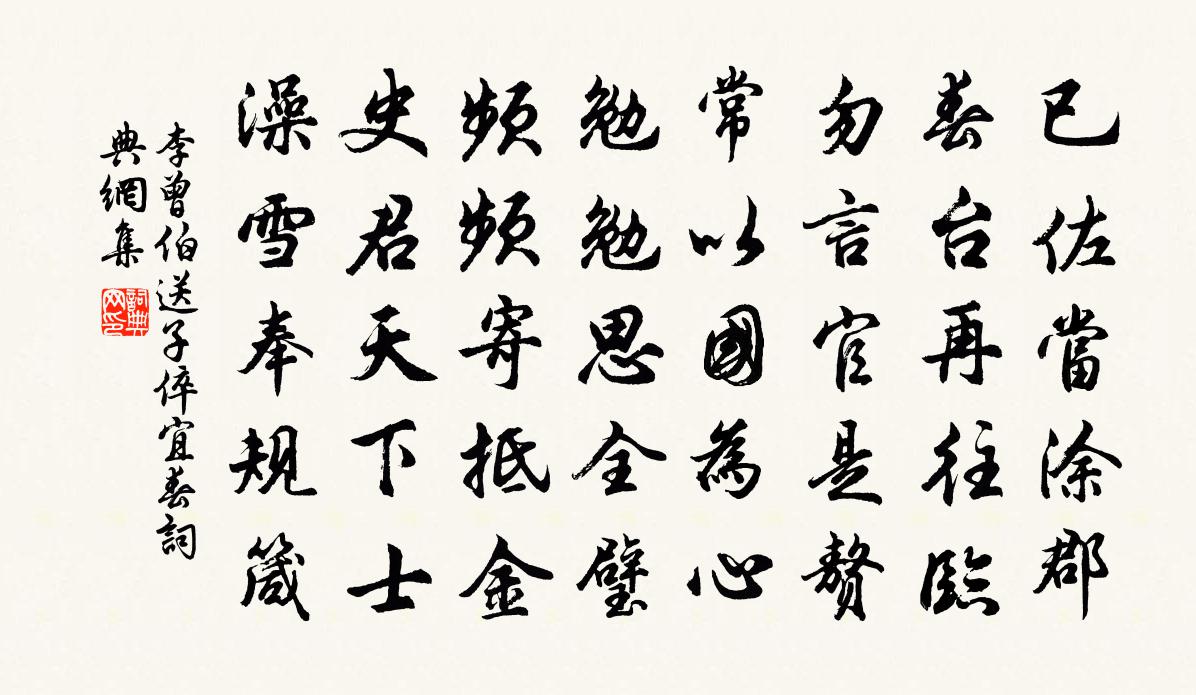 已佐當涂郡
春台再往臨
勿言官是贅
常以國為心
勉勉思全璧
頻頻寄抵金
史君天下士
澡雪奉規箴
李曾伯送子倅宜春詞
典網集
詞典
网印